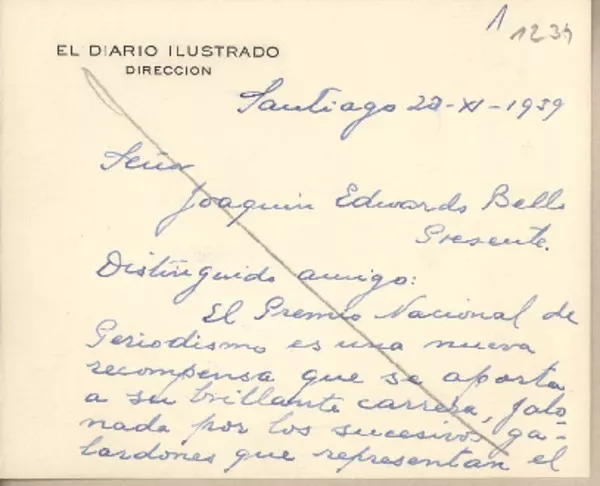 1
1234
EL DIARIO ILUSTRADO
DIRECCION
Santiago 20-XI-1959
Señor
Joaquin Edwards Bello
Presente.
Distinguido amigo:
El Premio Nacional de
Periodismo es una nueva
recompensa que se aporta
a su brillante carrera, jalo-
nada por los sucesivos ga-
lardones que representan el